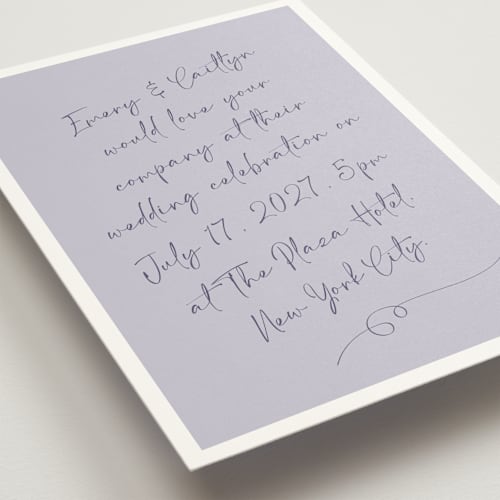 Emery & Caitlyn
would love your
company at their
wedding celebration on
July 17. 2027. 5pm
at The Plaza Hotel.
New York City.